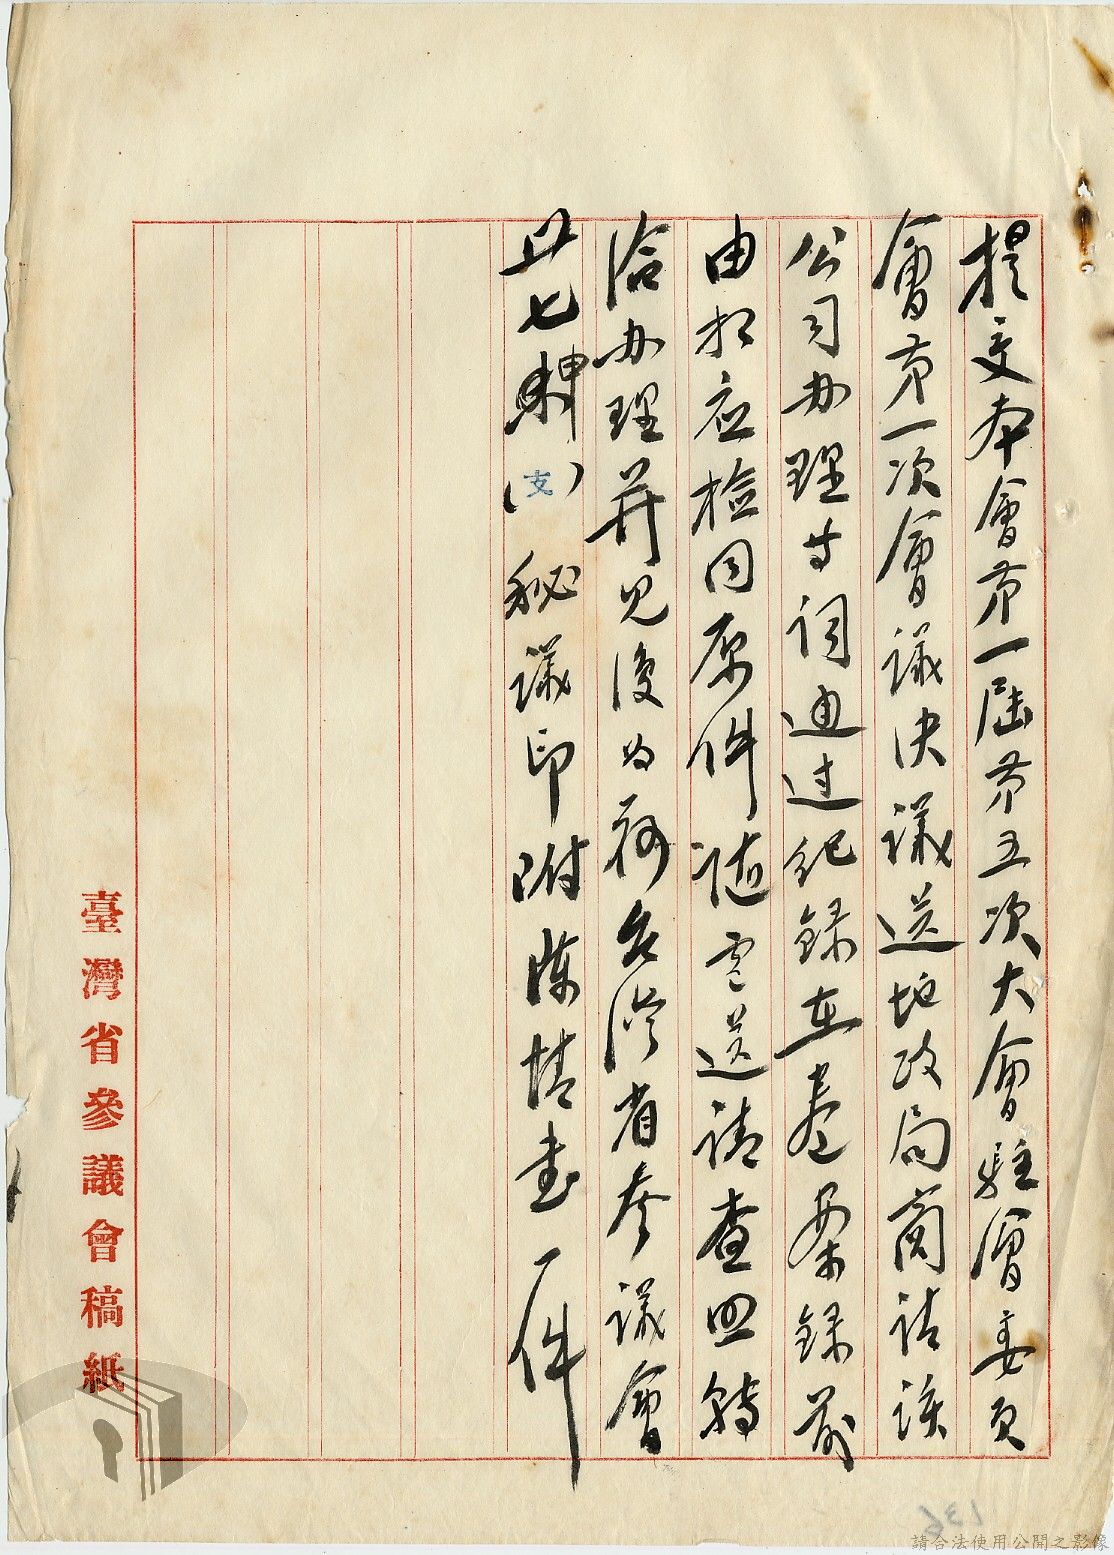 提交本會第一屆第五次大會駐會委員
會第一次會議決議送地政局商請該
公司办理等詞通过紀録在卷案録前
由相应檢同原件隨電送請查照轉
洽办理并見復為荷台灣省参議會
卅七 (支)秘議印附陳情書一件
臺灣省參議會稿紙
136
請合法使用公開之影像